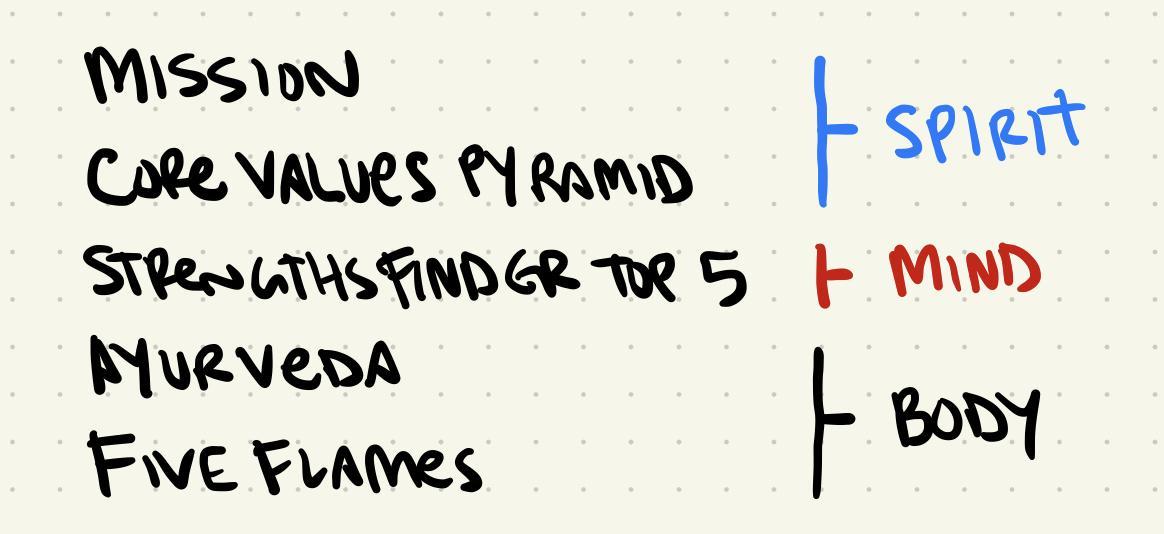 MISSION
CORe VALUeS PYRAMID
SPIRIT
STReNGTHSFINDER TOP 5
MIND
AYURVeDA
FIVE FLAMeS
BODY